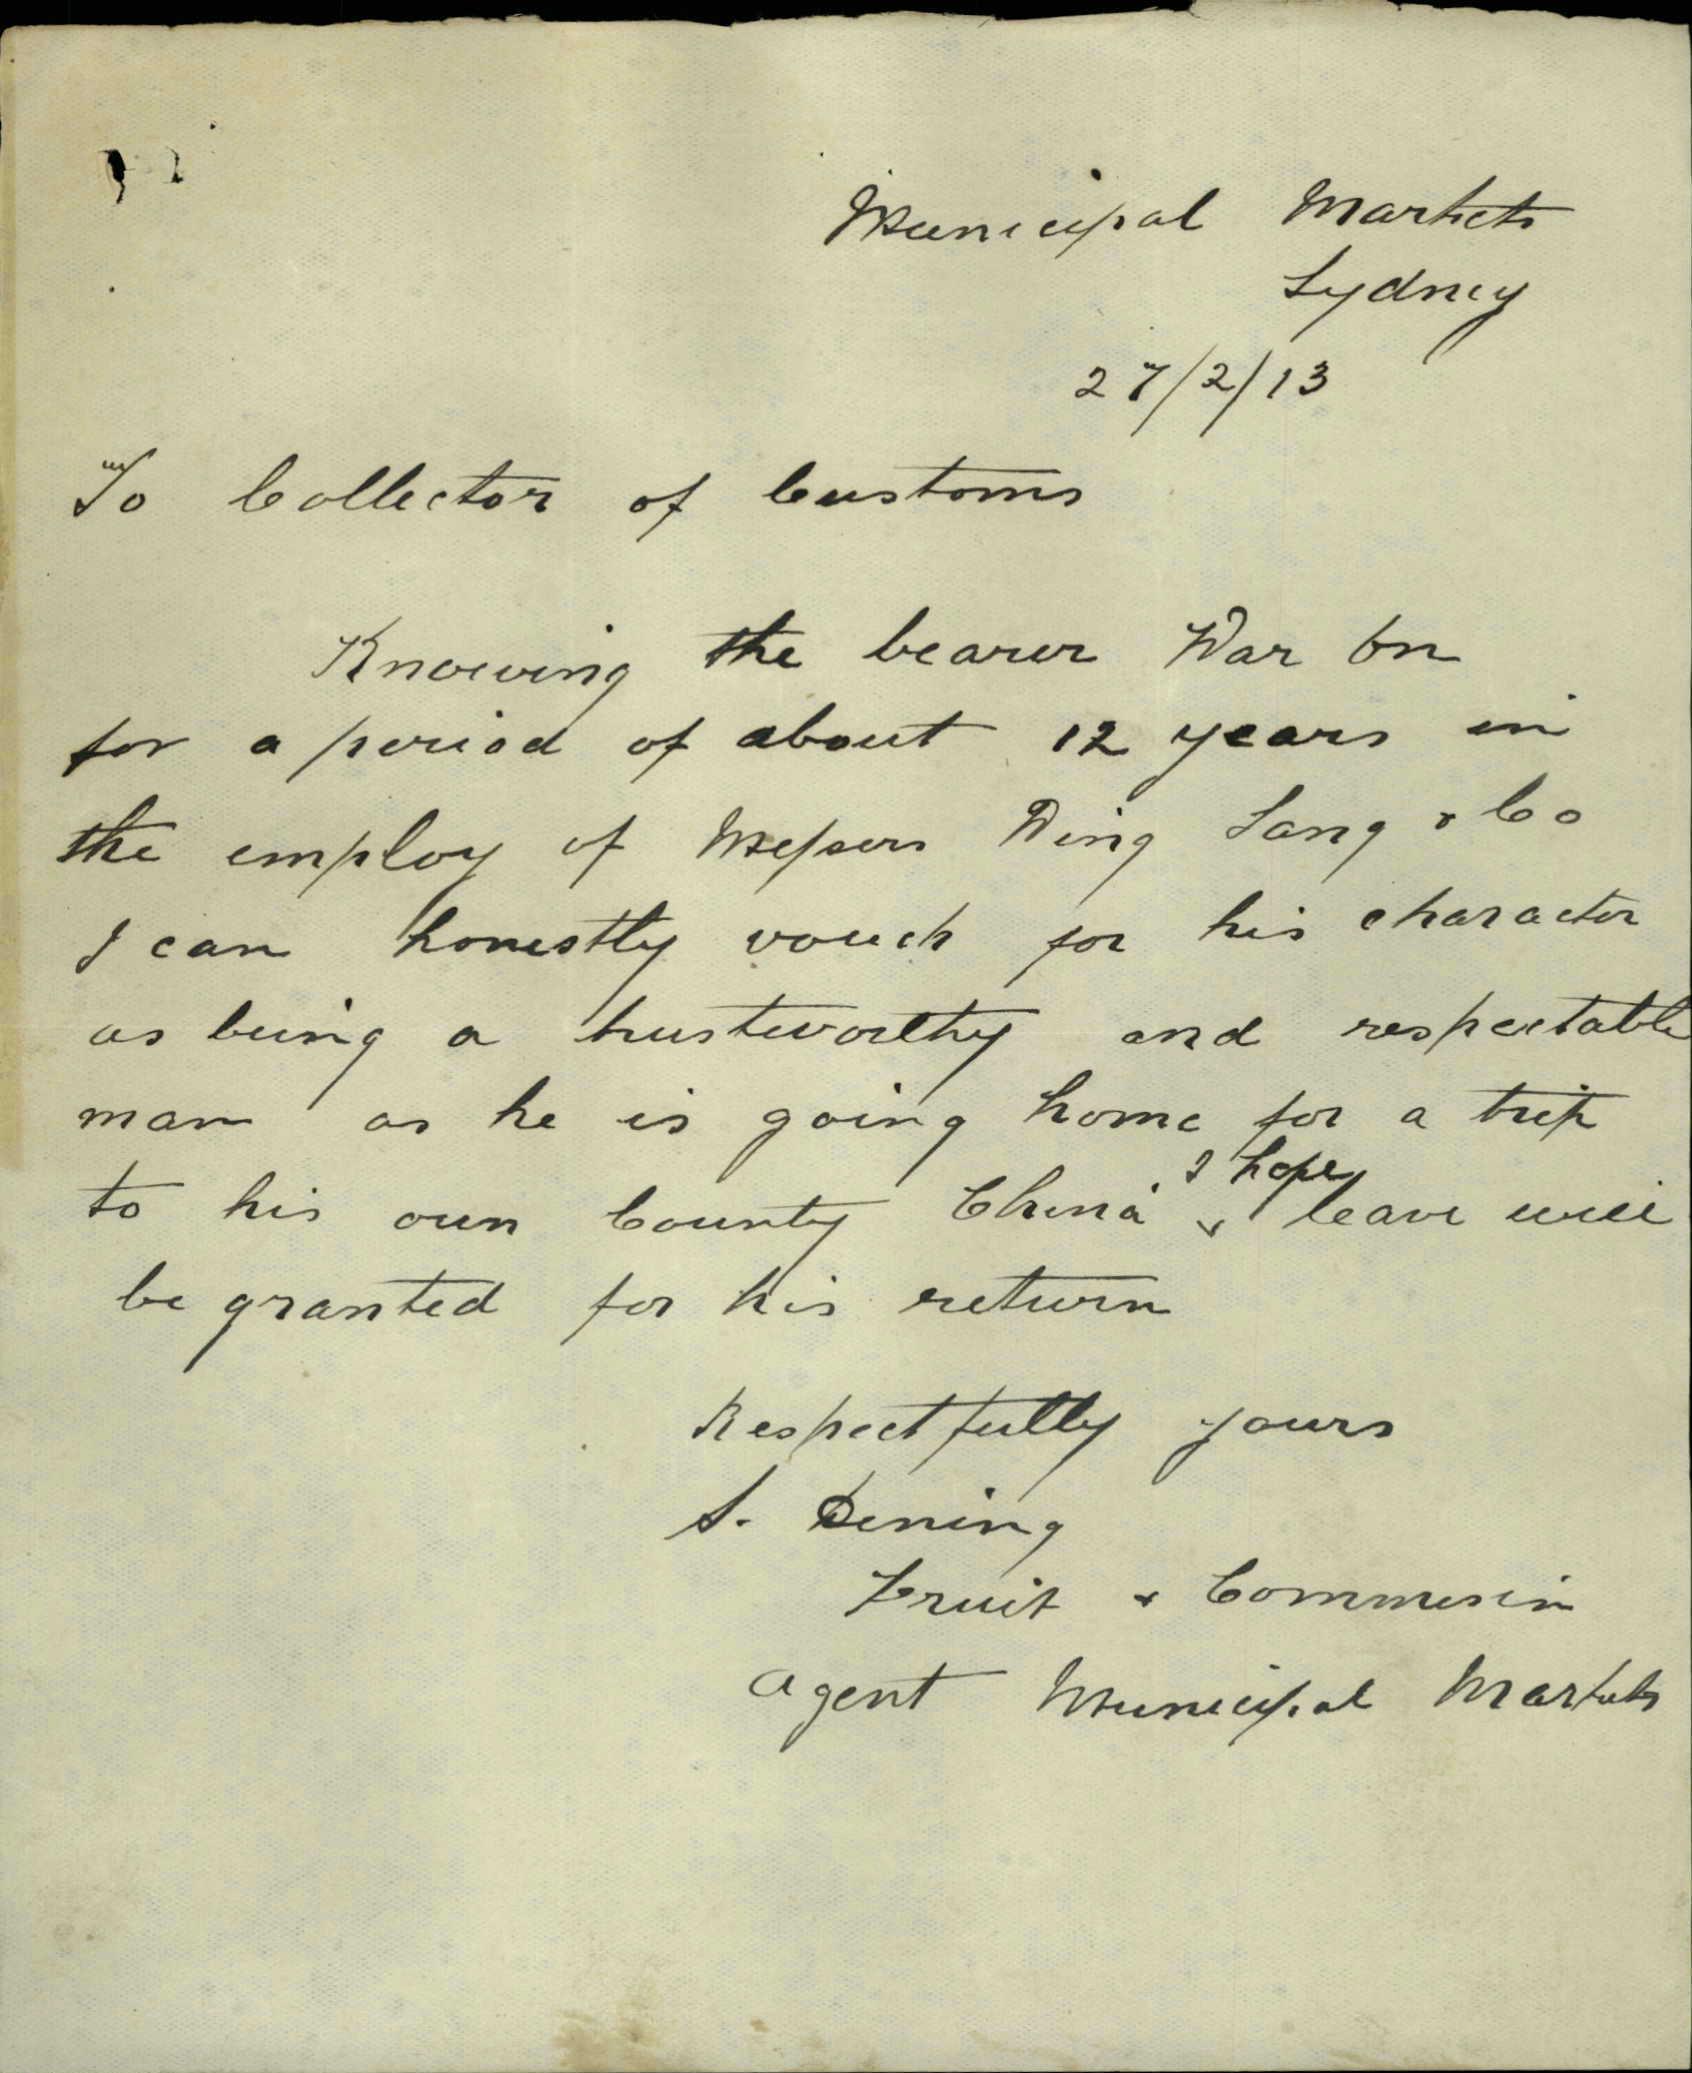 Municipal Markets
Sydney
27/2/13
To Collector of Customs
Knowing the bearer War On
for a period of about 12 years in
the employ of Messers Wing Sang & Co
I can honestly vouch for his character
as being a trustworthy and respectable
man as he is going home for a trip
I hope
to his own County China leave will
be granted for his return
Respectfully yours
S. Dening
Fruit & Commesin
Agent Municipal Markets